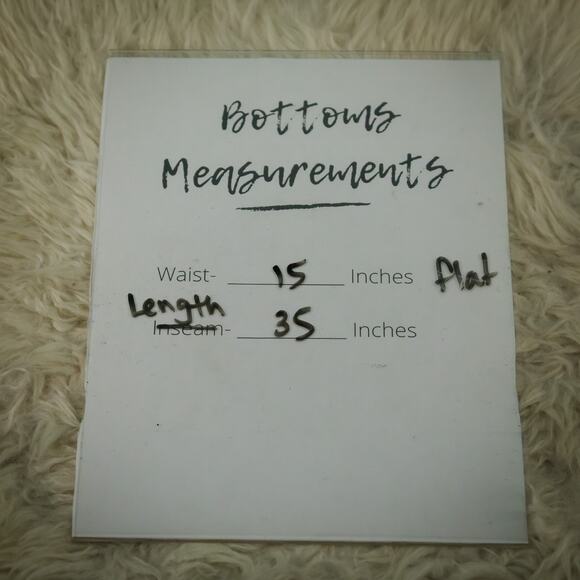 Bottoms
Measurements
Waist- 15 Inches flat
Length
Inseam- 35 Inches